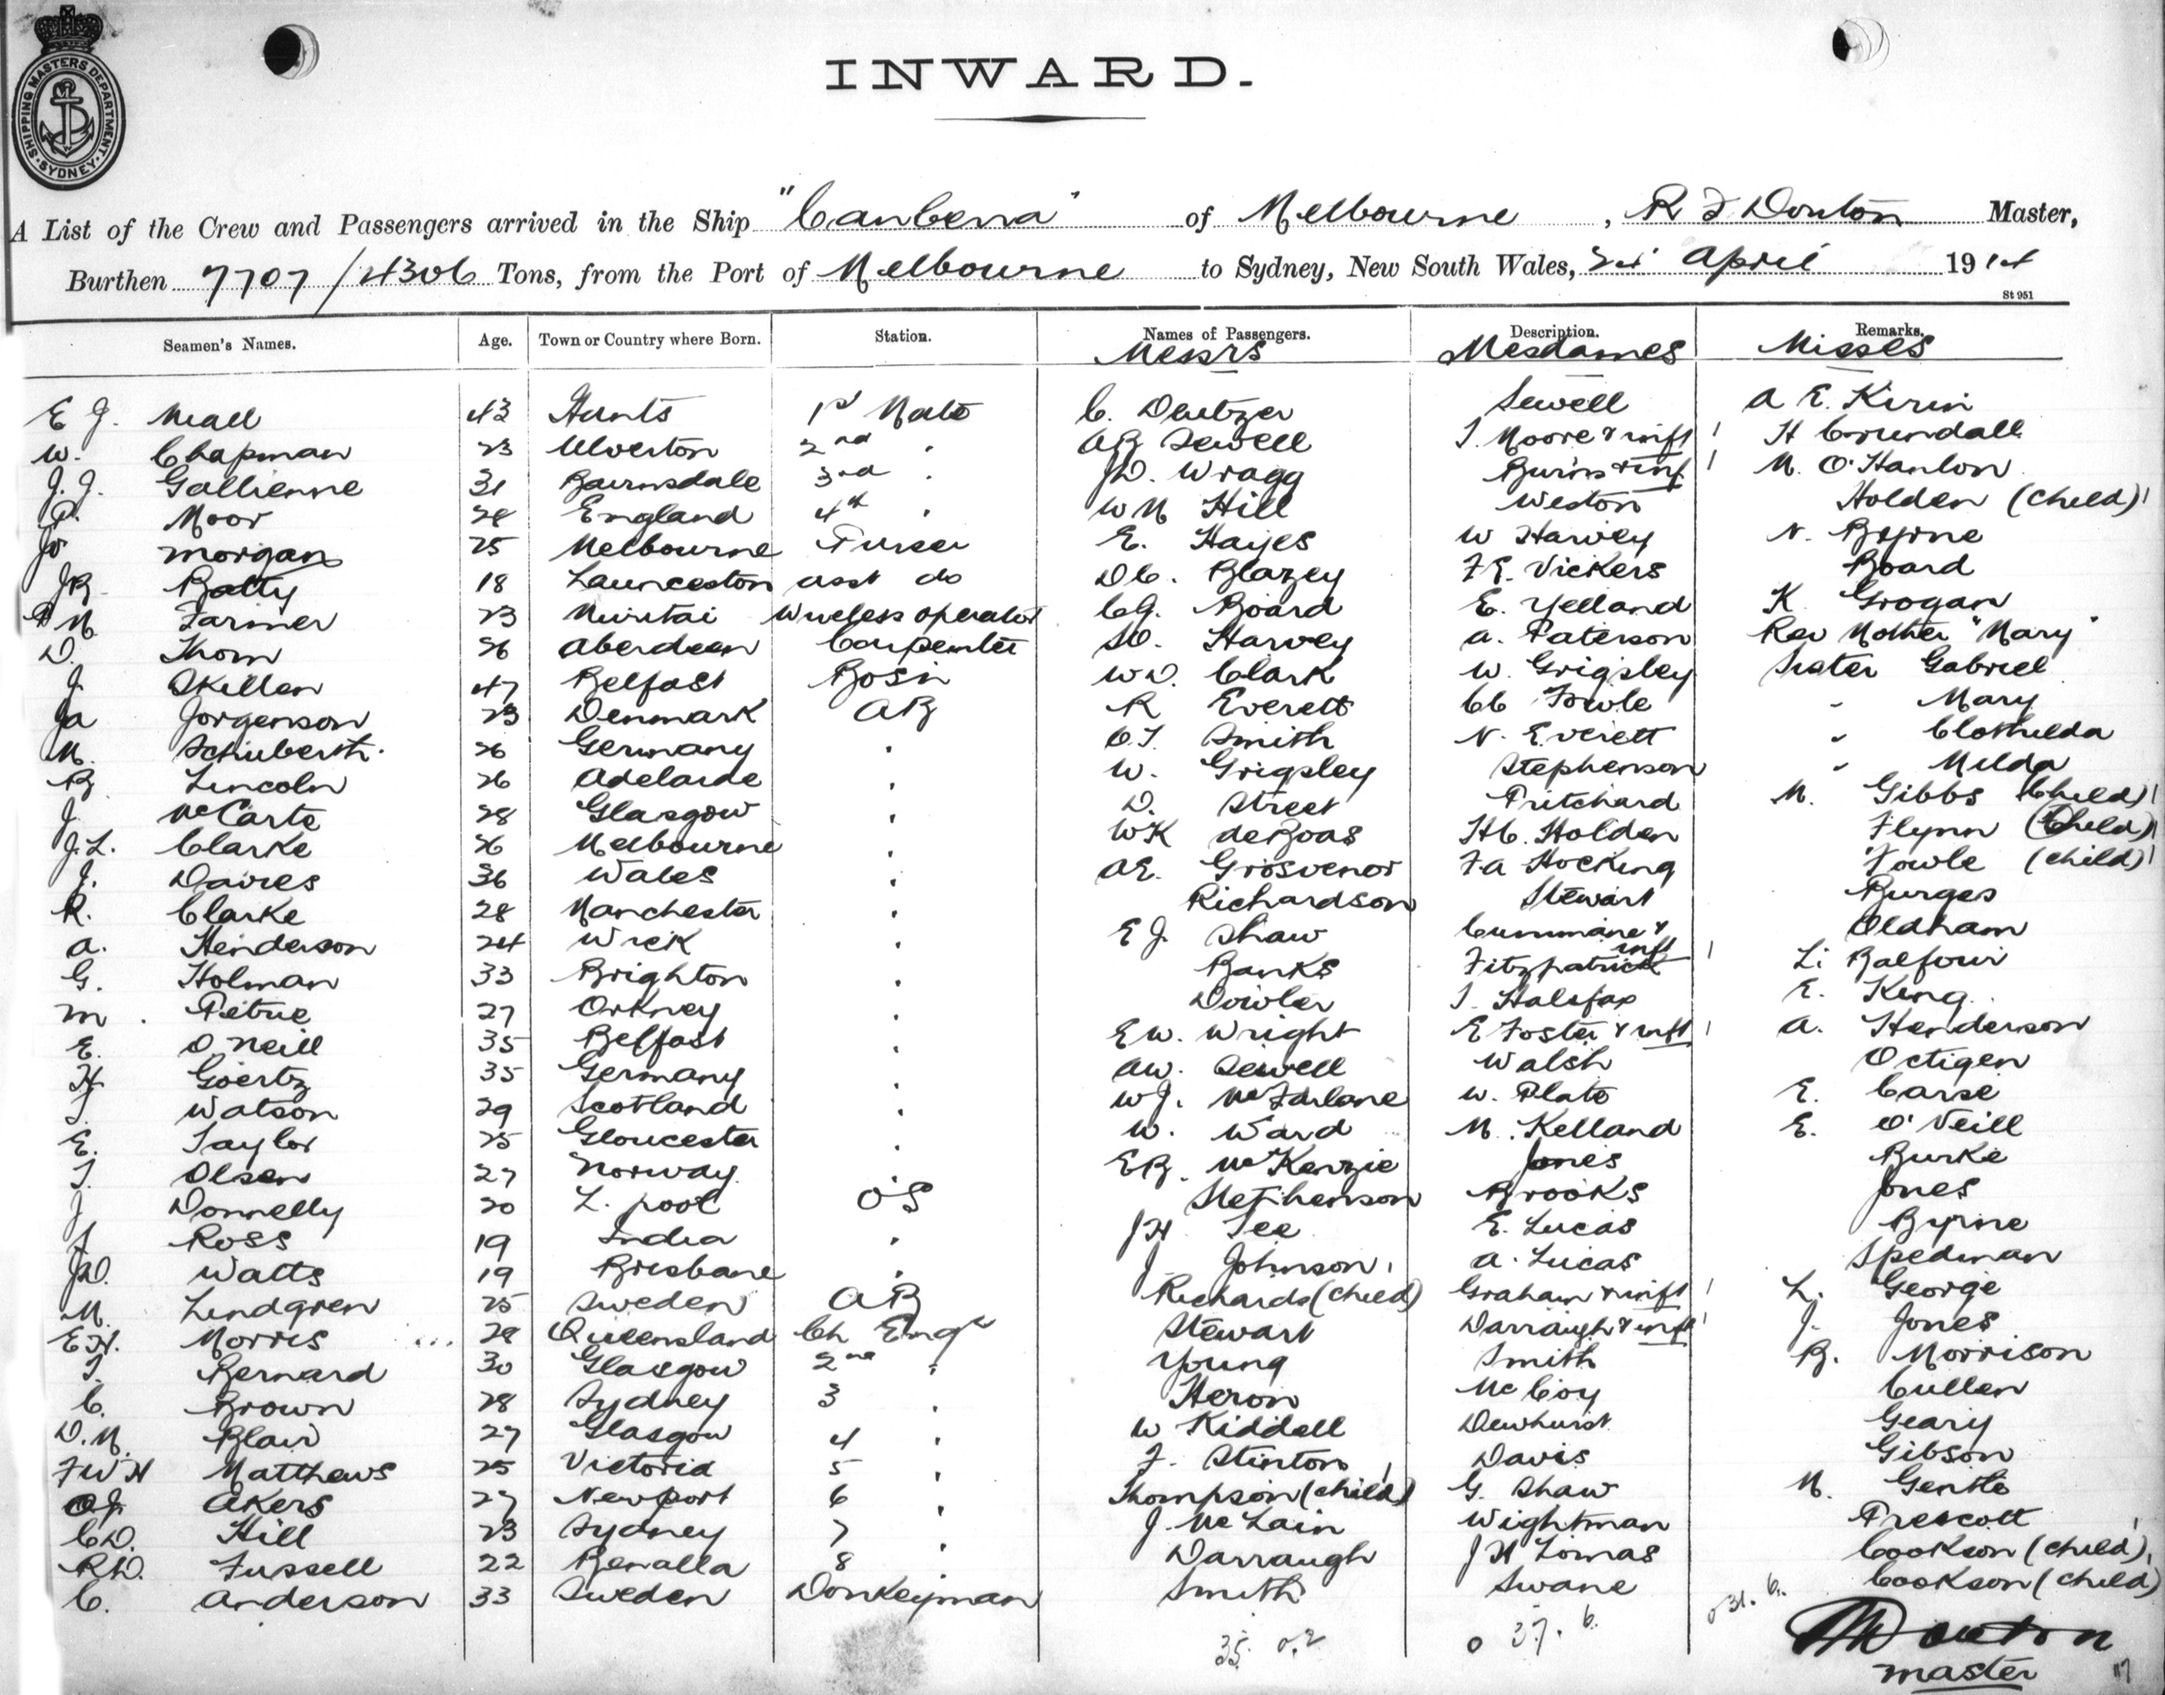 SHIPPING MASTERS DEPARTMENT · SYDNEY ·
INWARD.
A List of the Crew and Passengers arrived in the Ship "Canberra" of Melbourne, R F Douton Master,
Burthen 7707/4306 Tons, from the Port of Melbourne to Sydney, New South Wales, April 1914
St 951
Seamen's Names. Age. Town or Country where Born. Station. Names of Passengers. Description. Remarks.
Messrs Mesdames Misses
E J. Neall 43 Hants 1st Mate C. Deutzer Sewell A E. Kirin
W. Chapman 23 Ulverton 2nd " AB Sewell T. Moore & inft 1 H Crundall
J. J. Gallienne 31 Bairnsdale 3rd " JD. Wragg Burns & inf 1 M. O'Hanlon
P. Moor 28 England 4th " WM Hill Weston Holden (child) 1
Jo Morgan 25 Melbourne Purser E. Hayes W Harvey N. Byrne
JB Batty 18 Launceston asst do DC. Blazey FE. Vickers Board
M Farmer 23 wireless operator CG. Board E. Yelland K Grogan
D. Thom 26 Aberdeen Carpenter SO. Harvey A. Paterson Rev Mother "Mary"
J. Skillen 47 Belfast Bosn WD. Clark W. Grigsley Sister Gabriel
Ja Jorgenson 23 Denmark AB R Everett CC Fowle " Mary
M. Schuberth. 26 Germany " OT. Smith N. Everett " Clothilda
B Lincoln 26 Adelaide " W. Grigsley Stephenson " Milda
J. McCarte 28 Glasgow " D. Street Pritchard M. Gibbs (Child) 1
J.L. Clarke 26 Melbourne " WK deBoas HC. Holden Flynn (Child) 1
J. Davies 36 Wales " AE. Grosvenor FA Hocking Fowle (child) 1
R. Clarke 28 Manchester " Richardson Stewart Burges
A. Henderson 24 Wick " E J. Shaw Cummine & inft 1 Oldham
G. Holman 33 Brighton " Banks Fitzpatrick Li Balfour
M. Petrie 27 Orkney " Dowler T. Halsfax E. King.
E. O'Neill 35 Belfast " EW. Wright E Foster & inft 1 A. Henderson
H Goertz 35 Germany " AW. Sewell Walsh Octigen
T. Watson 29 Scotland " WJ. McFarlane W. Plate E. Carse
E. Taylor 25 Gloucester " W. Ward M. Kelland E. O'Neill
T. Olsen 27 Norway " EB. McKenzie Jones Burke
J Donnelly 20 L. pool OS Stephenson Brooks Jones
J Ross 19 India " JH Lee E. Lucas Byrne
JD. Watts 19 Brisbane " J Johnson, A. Lucas Spedman
M. Lindgren 25 Sweden AB Richards (child) Graham & inft 1 L. George
EH. Morris 28 Queensland Ch Engr Stewart Darraugh & inft 1 J. Jones
T. Bernard 30 Glasgow 2nd " Young Smith B. Morrison
C. Brown 28 Sydney 3 " Heron McCoy Cullen
D.M. Blair 27 Glasgow 4 " W Kiddell Dewhurst Geary
FWH Matthews 25 Victoria 5 " F. Stinton Davis Gibson
Akers 27 Newport 6 " Thompson (child) 1 G. Shaw M. Gentle
CD. Hill 23 Sydney 7 " J. McLain Wightman Prescott
RD. Fussell 22 Benalla 8 " Darraugh JH Lomas Cookson (child) 1
C. Anderson 33 Sweden Donkeyman Smith Swane Cookson (child) 1
35. 0.2 0 37. 6. 0 31. 6.
Douton
Master
117